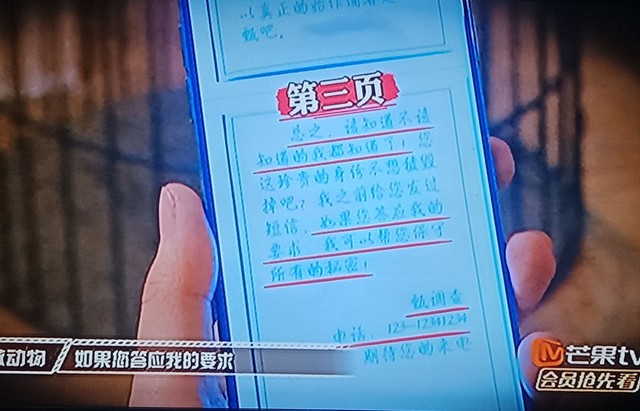 以真正的始作俑者是
甄吧。
第三页
总之，该知道不该
知道的我都知道了！您
这珍贵的身份不想被毁
掉吧？我之前给您发过
短信，如果您答应我的
要求，我可以帮您保守
所有的秘密！
甄调查
电话：123-12341234
期待您的来电
动物
如果您答应我的要求
芒果tv
会员抢先看